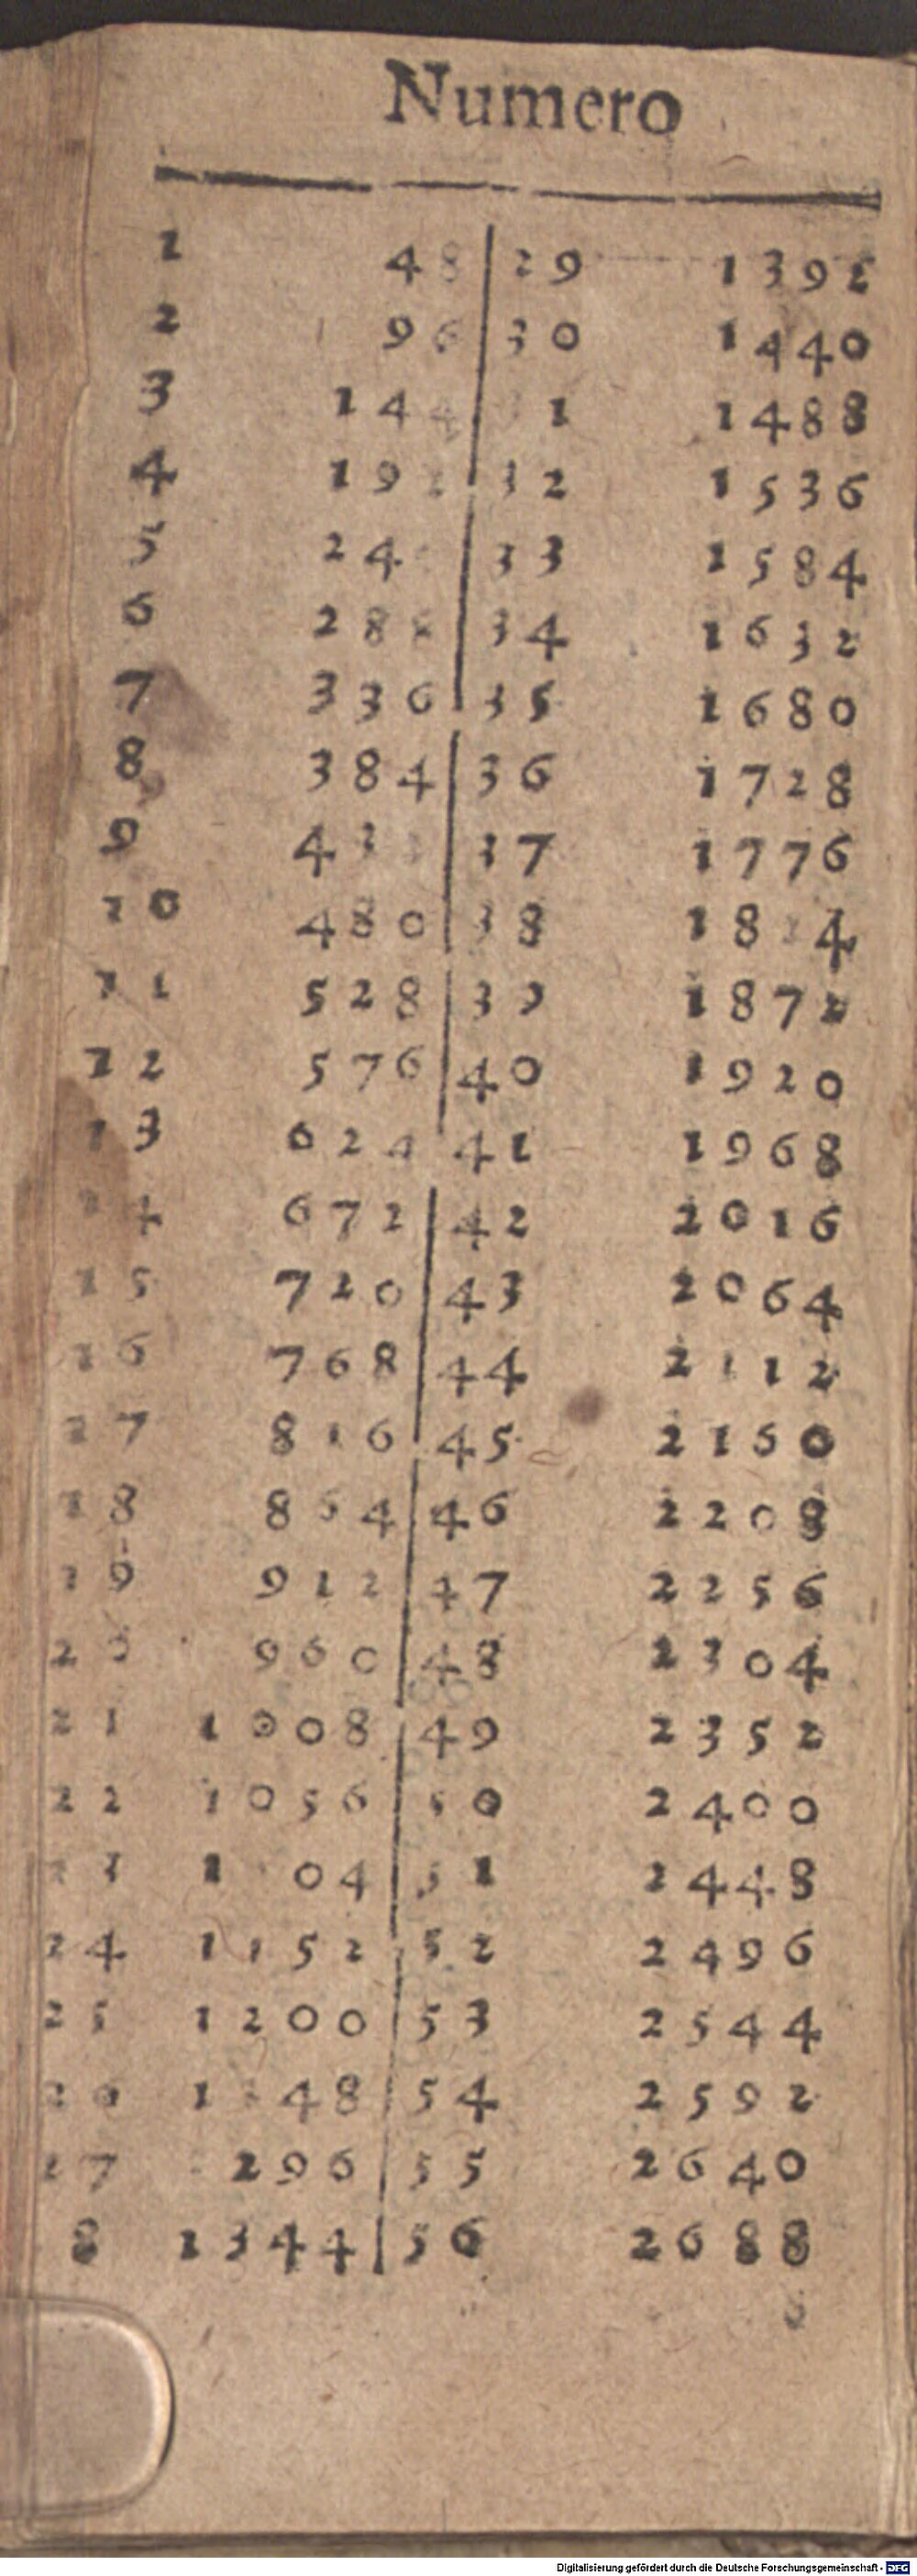 Numero
1 48 29 1392
2 96 30 1440
3 144 31 1488
4 192 32 1536
5 24 33 1584
6 288 34 1632
7 336 35 1680
8 384 36 1728
9 43 37 1776
10 480 38 1824
11 528 39 1872
12 576 40 1920
13 624 41 1968
14 672 42 2016
15 720 43 2064
16 768 44 2112
17 816 45 2160
18 864 46 2208
19 912 47 2256
20 960 48 2304
21 1008 49 2352
22 1056 50 2400
23 1104 51 2448
24 1152 52 2496
25 1200 53 2544
26 1248 54 2592
27 296 55 2640
8 1344 56 2688
Digitalisierung gefördert durch die Deutsche Forschungsgemeinschaft - DFG